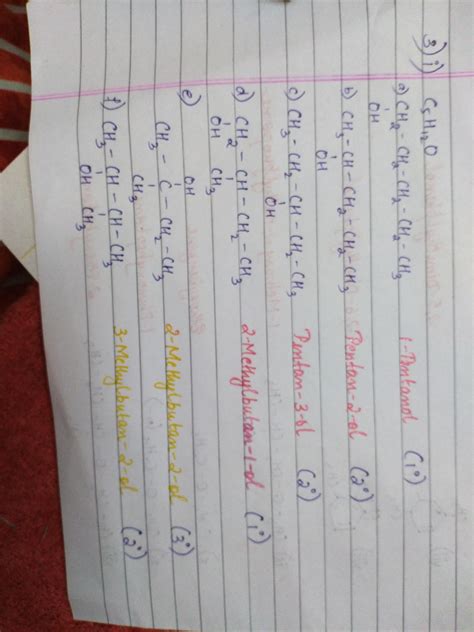 3) i) C₅H₁₂O
a) CH₂-CH₂-CH₂-CH₂-CH₃ 1-Pentanol (1°)
OH
b) CH₃-CH-CH₂-CH₂-CH₃ Pentan-2-ol (2°)
OH
c) CH₃-CH₂-CH-CH₂-CH₃ Pentan-3-ol (2°)
OH
d) CH₂-CH-CH₂-CH₃ 2-Methylbutan-1-ol (1°)
OH CH₃
e) OH
CH₃-C-CH₂-CH₃ 2-Methylbutan-2-ol (3°)
CH₃
f) CH₃-CH-CH-CH₃ 3-Methylbutan-2-ol (2°)
OH CH₃